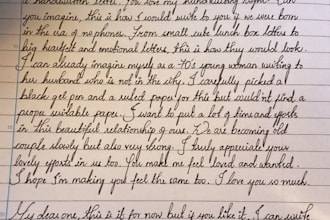 a handwritten letter. You love my handwriting right? Can
you imagine, this is how I would write to you if we were born
in the era of no phones. From small cute lunch box letters to
big heartfelt and emotional letters, this is how they would look.
I can already imagine myself as a 70's young woman writing to
her husband who is not in the city. I carefully picked a
black gel pen and a ruled paper for this but couldn't find a
proper writable paper. I want to put a lot of time and efforts
in this beautiful relationship of ours. We are becoming old
couple slowly but also very strong. I truly appreciate your
lovely efforts in us too. You make me feel loved and wanted.
I hope I'm making you feel the same too. I love you so much.
My dear one, this is it for now but if you like it, I can write